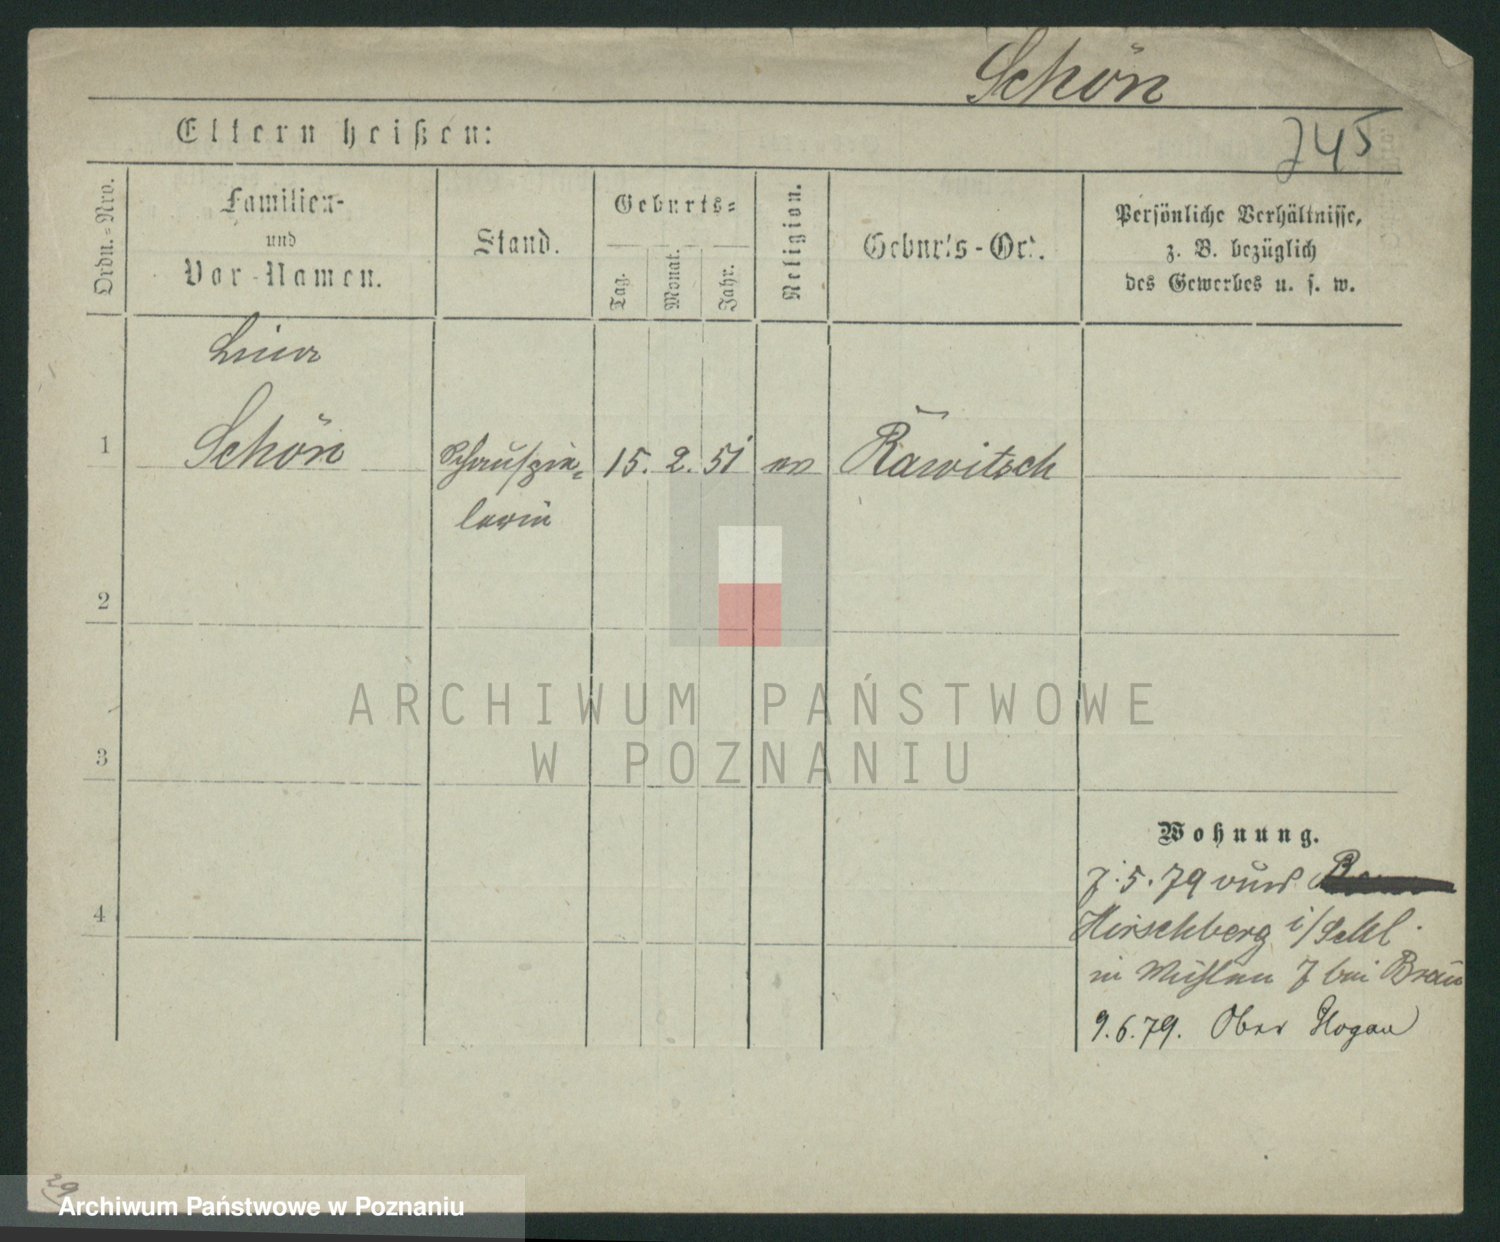 Schön
745
Eltern heißen:
Ordn.-Nro.
Familien-
und
Vor-Namen.
Stand.
Geburts-
Tag.
Monat.
Jahr.
Religion.
Geburts-Ort.
Persönliche Verhältnisse,
z. B. bezüglich
des Gewerbes u. s. w.
Lina
1 Schön Schauspie- 15. 2. 51 ev Rawitsch
lerin
2
3
4
Wohnung.
7.5.79 aus
Hirschberg i/Schl.
in Mühlen 7 bei Brau
9.6.79. Ober Glogau
29
ARCHIWUM PAŃSTWOWE
W POZNANIU
Archiwum Państwowe w Poznaniu